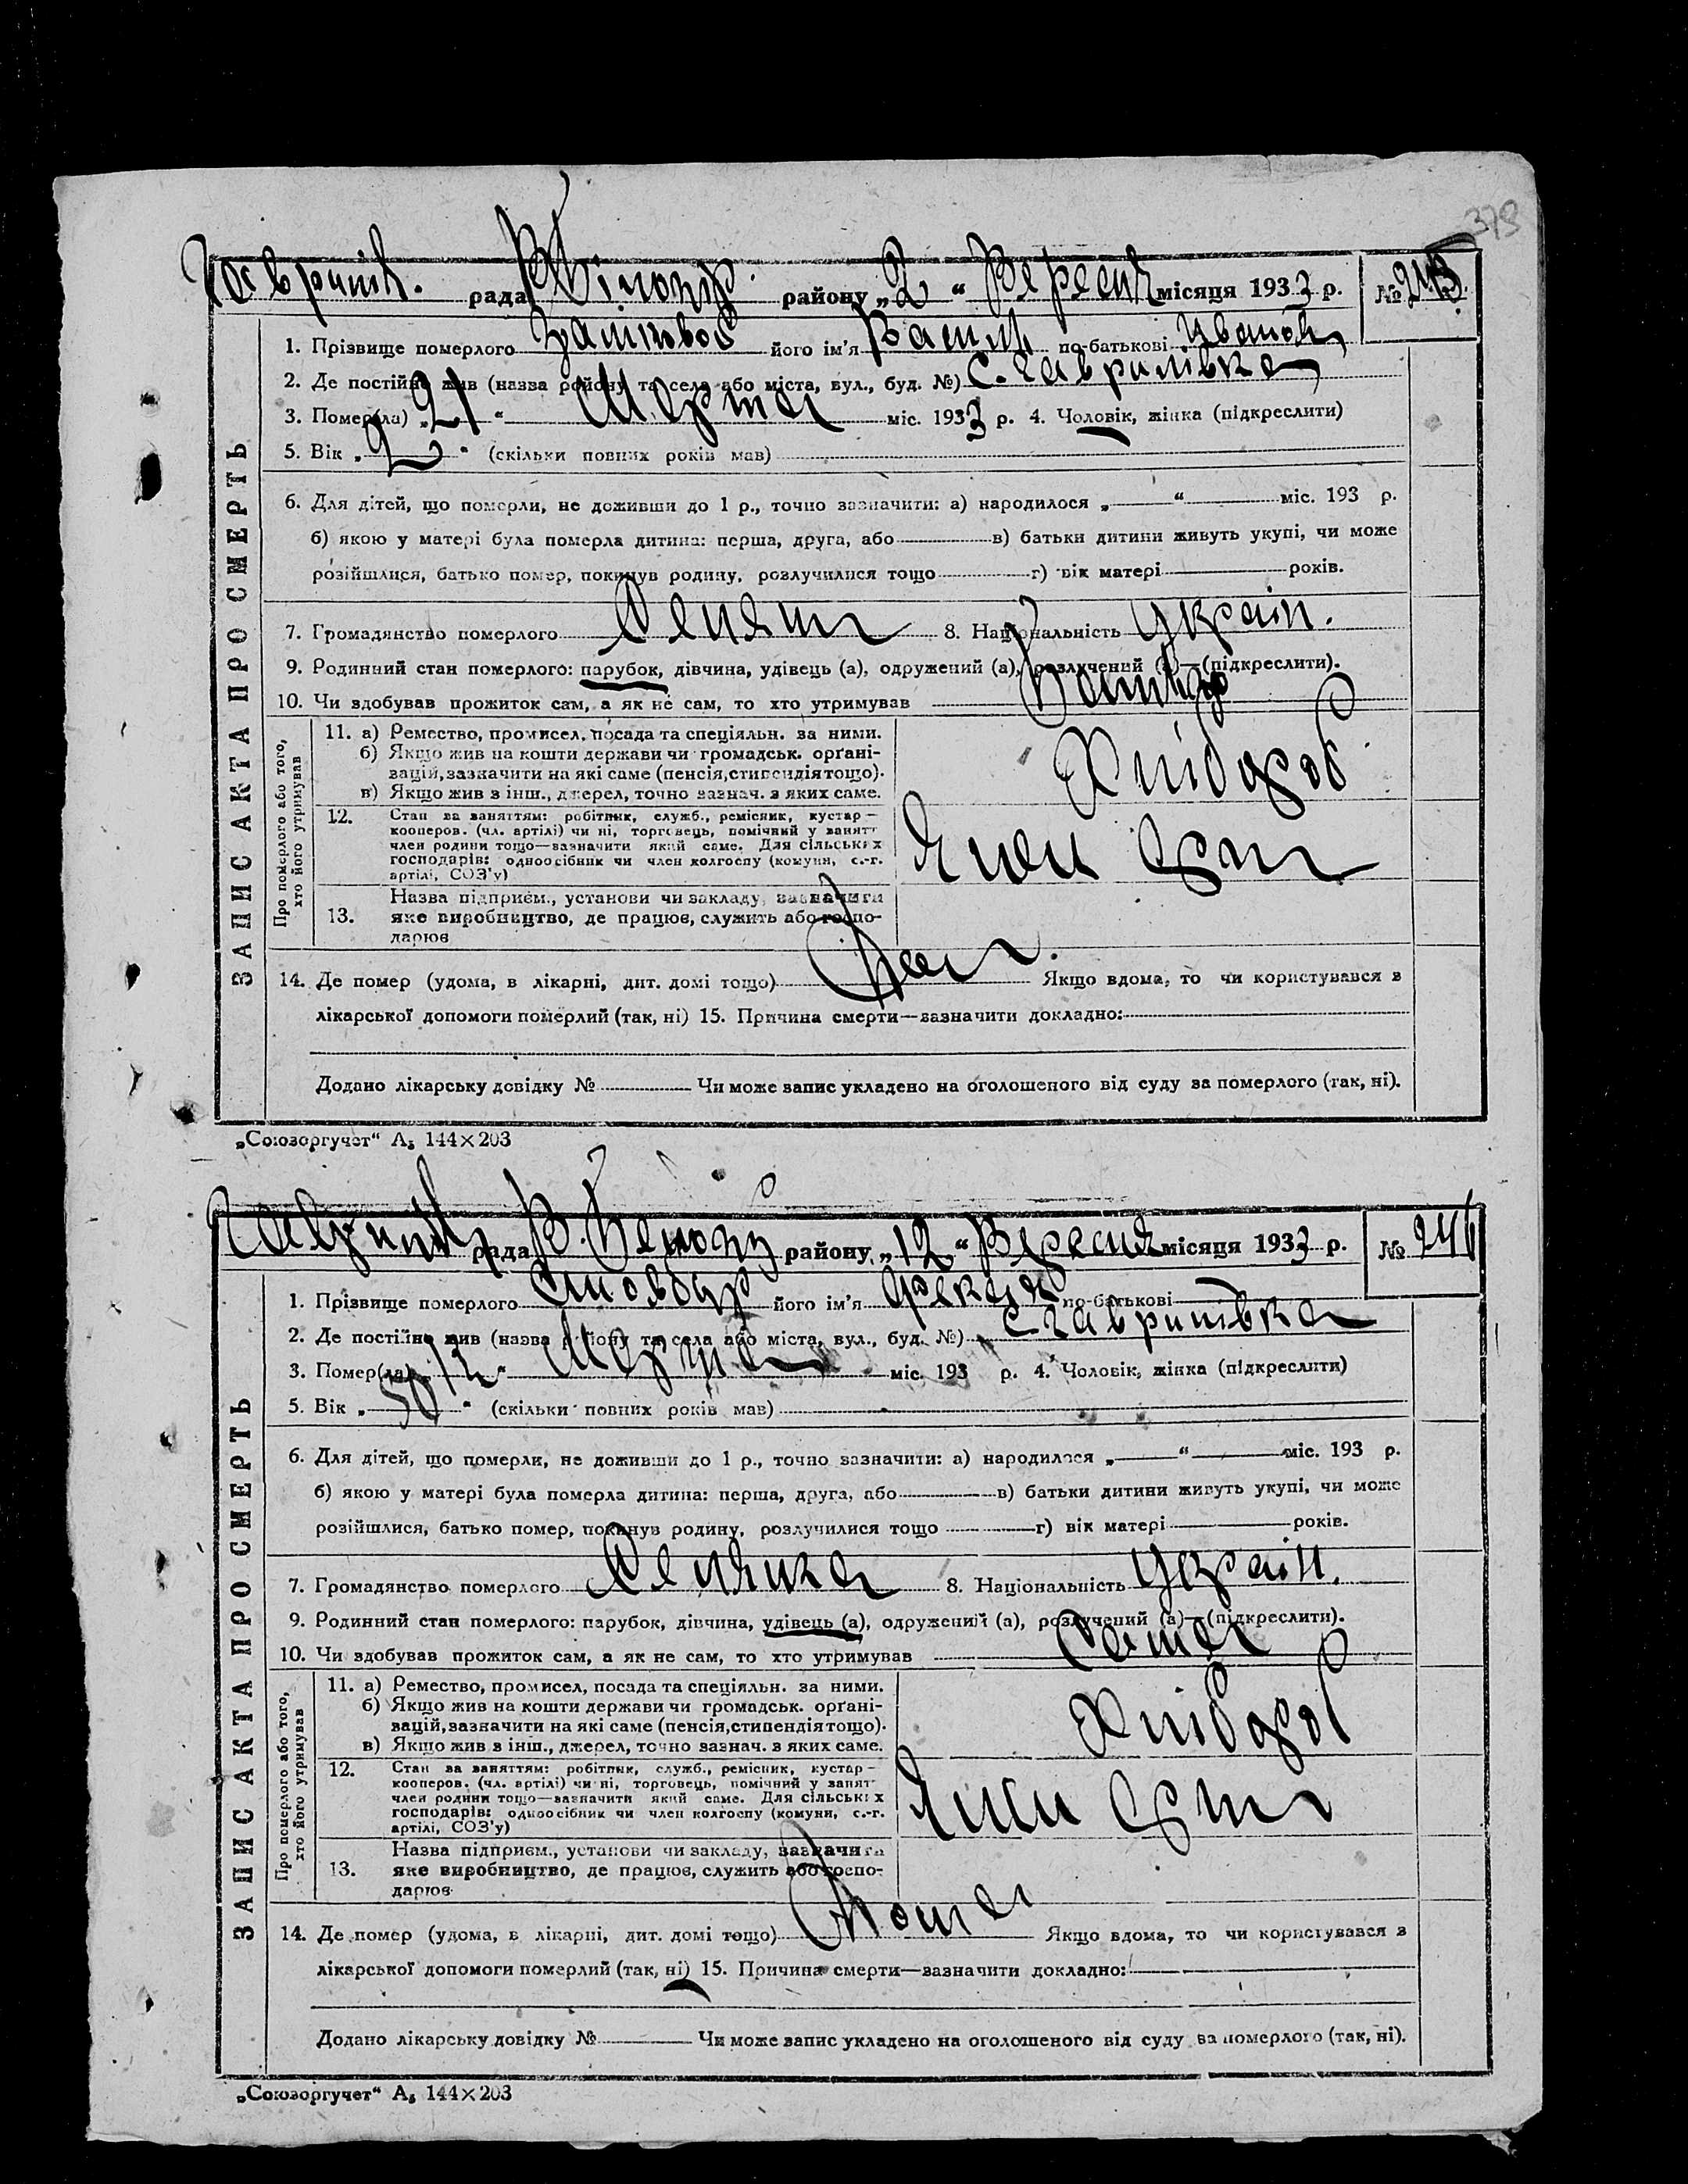 378
Гаврилів. рада району „2“ Вересня місяця 1933 р. №
ЗАПИС АКТА ПРО СМЕРТЬ
1. Прізвище померлого його ім'я Василь по-батькові Іванов
2. Де постійно жив (назва району та села або міста, вул., буд. №) с. Гаврилівка
3. Помер(ла) „21“ Марта міс. 1933 р. 4. Чоловік, жінка (підкреслити)
5. Вік „ “ (скільки повних років мав)
6. Для дітей, що померли, не доживши до 1 р., точно зазначити: а) народилося „ “ міс. 193 р.
б) якою у матері була померла дитина: перша, друга, або в) батьки дитини живуть укупі, чи може
розійшлися, батько помер, покинув родину, розлучилися тощо г) вік матері років.
7. Громадянство померлого 8. Національність Україн.
9. Родинний стан померлого: парубок, дівчина, удівець (а), одружений (а), розлучений (а)—(підкреслити).
10. Чи здобував прожиток сам, а як не сам, то хто утримував
Про померлого або того,
хто його утримував
11. а) Ремество, промисел, посада та спеціяльн. за ними.
б) Якщо жив на кошти держави чи громадськ. орґані-
зацій, зазначити на які саме (пенсія, стипендія тощо).
в) Якщо жив з інш., джерел, точно зазнач. з яких саме.
Хлібороб
12. Стан за заняттям: робітник, служб., ремісник, кустар—
кооперов. (чл. артілі) чи ні, торговець, помічний у занятт
член родини тощо—зазначити який саме. Для сільських
господарів: одноосібник чи член колгоспу (комуни, с.-г.
артілі, СОЗ'у)
Член
13. Назва підприєм., установи чи закладу, зазначити
яке виробництво, де працює, служить або госпо-
дарює
14. Де помер (удома, в лікарні, дит. домі тощо) Якщо вдома, то чи користувався з
лікарської допомоги померлий (так, ні) 15. Причина смерти—зазначити докладно:
Додано лікарську довідку № Чи може запис укладено на оголошеного від суду за померлого (так, ні).
„Союзоргучет“ А₅ 144×203
рада району „12“ Вересня місяця 1933 р. №
ЗАПИС АКТА ПРО СМЕРТЬ
1. Прізвище померлого Стовбир його ім'я по-батькові
2. Де постійно жив (назва району та села або міста, вул., буд. №) с. Гаврилівка
3. Помер(ла) „12“ Марта міс. 193 р. 4. Чоловік, жінка (підкреслити)
5. Вік „50“ (скільки повних років мав)
6. Для дітей, що померли, не доживши до 1 р., точно зазначити: а) народилося „ “ міс. 193 р.
б) якою у матері була померла дитина: перша, друга, або в) батьки дитини живуть укупі, чи може
розійшлися, батько помер, покинув родину, розлучилися тощо г) вік матері років.
7. Громадянство померлого Селянка 8. Національність Україн.
9. Родинний стан померлого: парубок, дівчина, удівець (а), одружений (а), розлучений (а)—(підкреслити).
10. Чи здобував прожиток сам, а як не сам, то хто утримував Сама
Про померлого або того,
хто його утримував
11. а) Ремество, промисел, посада та спеціяльн. за ними.
б) Якщо жив на кошти держави чи громадськ. орґані-
зацій, зазначити на які саме (пенсія, стипендія тощо).
в) Якщо жив з інш., джерел, точно зазнач. з яких саме.
Хлібороб
12. Стан за заняттям: робітник, служб., ремісник, кустар—
кооперов. (чл. артілі) чи ні, торговець, помічний у занят
член родини тощо—зазначити який саме. Для сільських
господарів: одноосібник чи член колгоспу (комуни, с.-г.
артілі, СОЗ'у)
Член
13. Назва підприєм., установи чи закладу, зазначити
яке виробництво, де працює, служить або госпо-
дарює
14. Де помер (удома, в лікарні, дит. домі тощо) Дома Якщо вдома, то чи користувався з
лікарської допомоги померлий (так, ні) 15. Причина смерти—зазначити докладно:
Додано лікарську довідку № Чи може запис укладено на оголошеного від суду за померлого (так, ні).
„Союзоргучет“ А₅ 144×203